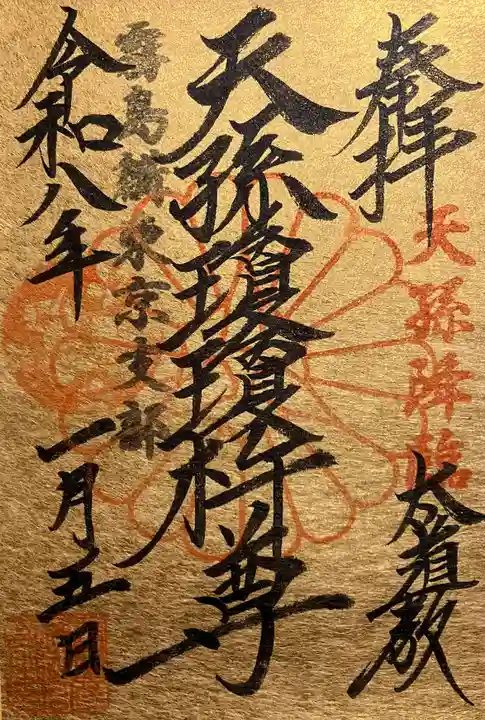 奉拝
天孫降臨
大道教
天孫瓊瓊杵尊
霧島講東京支部
令和八年
一月五日